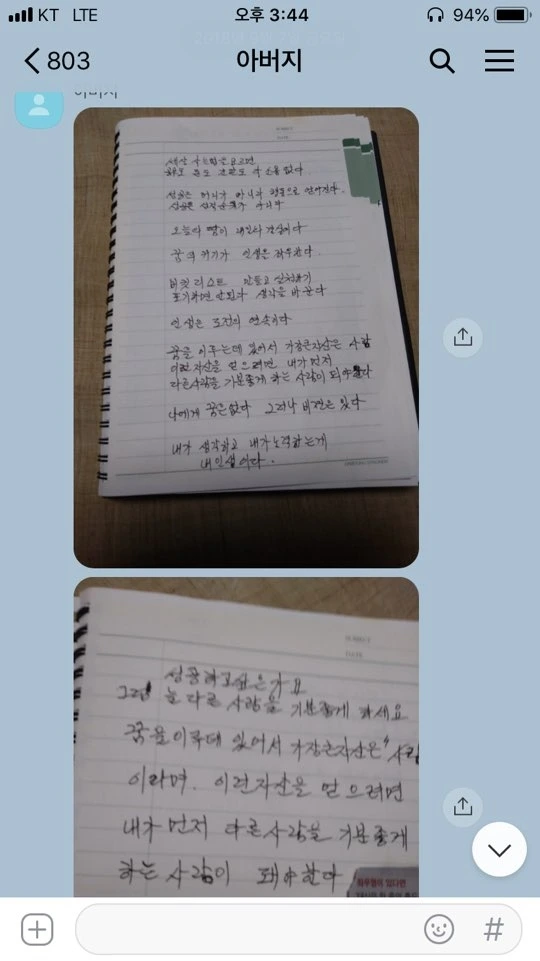 KT LTE 오후 3:44 94%
803 아버지
아버지
세상 사는법을 모르면
공부도 소용 없다
성공은 머리가 아니라 행동으로 얻어진다.
오늘의 땀이 내일의 결실이다
꿈의 크기가 인생을 좌우한다.
버킷 리스트 만들고 실천하기
포기하면 안된다 생각을 바꾼다
인생은 도전의 연속이다
꿈을 이루는데 있어서 가장큰자산은 사람
이런자산을 얻으려면 내가 먼저
다른사람을 기분좋게 하는 사람이 되야할다
나에게 꿈은없다 그러나 비젼은 있다
내가 생각하고 내가노력하는게
내인생이다.
SUBJECT
DATE
성공하고싶은가요
그럼 늘 다른 사람을 기분좋게 하세요
꿈을이루데 있어서 가장큰자산은 "사람
이라며. 이런자산을 얻으려면
내가 먼저 다른사람을 기분좋게
하는 사람이 돼야할다
#